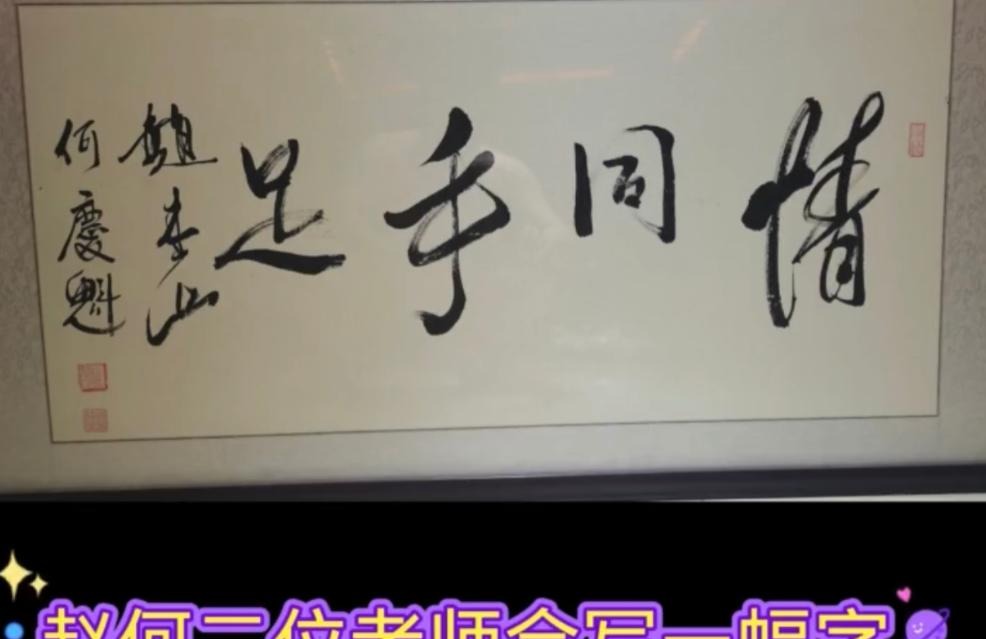 情同手足
趙本山
何慶魁
赵何二位老师合写一幅字